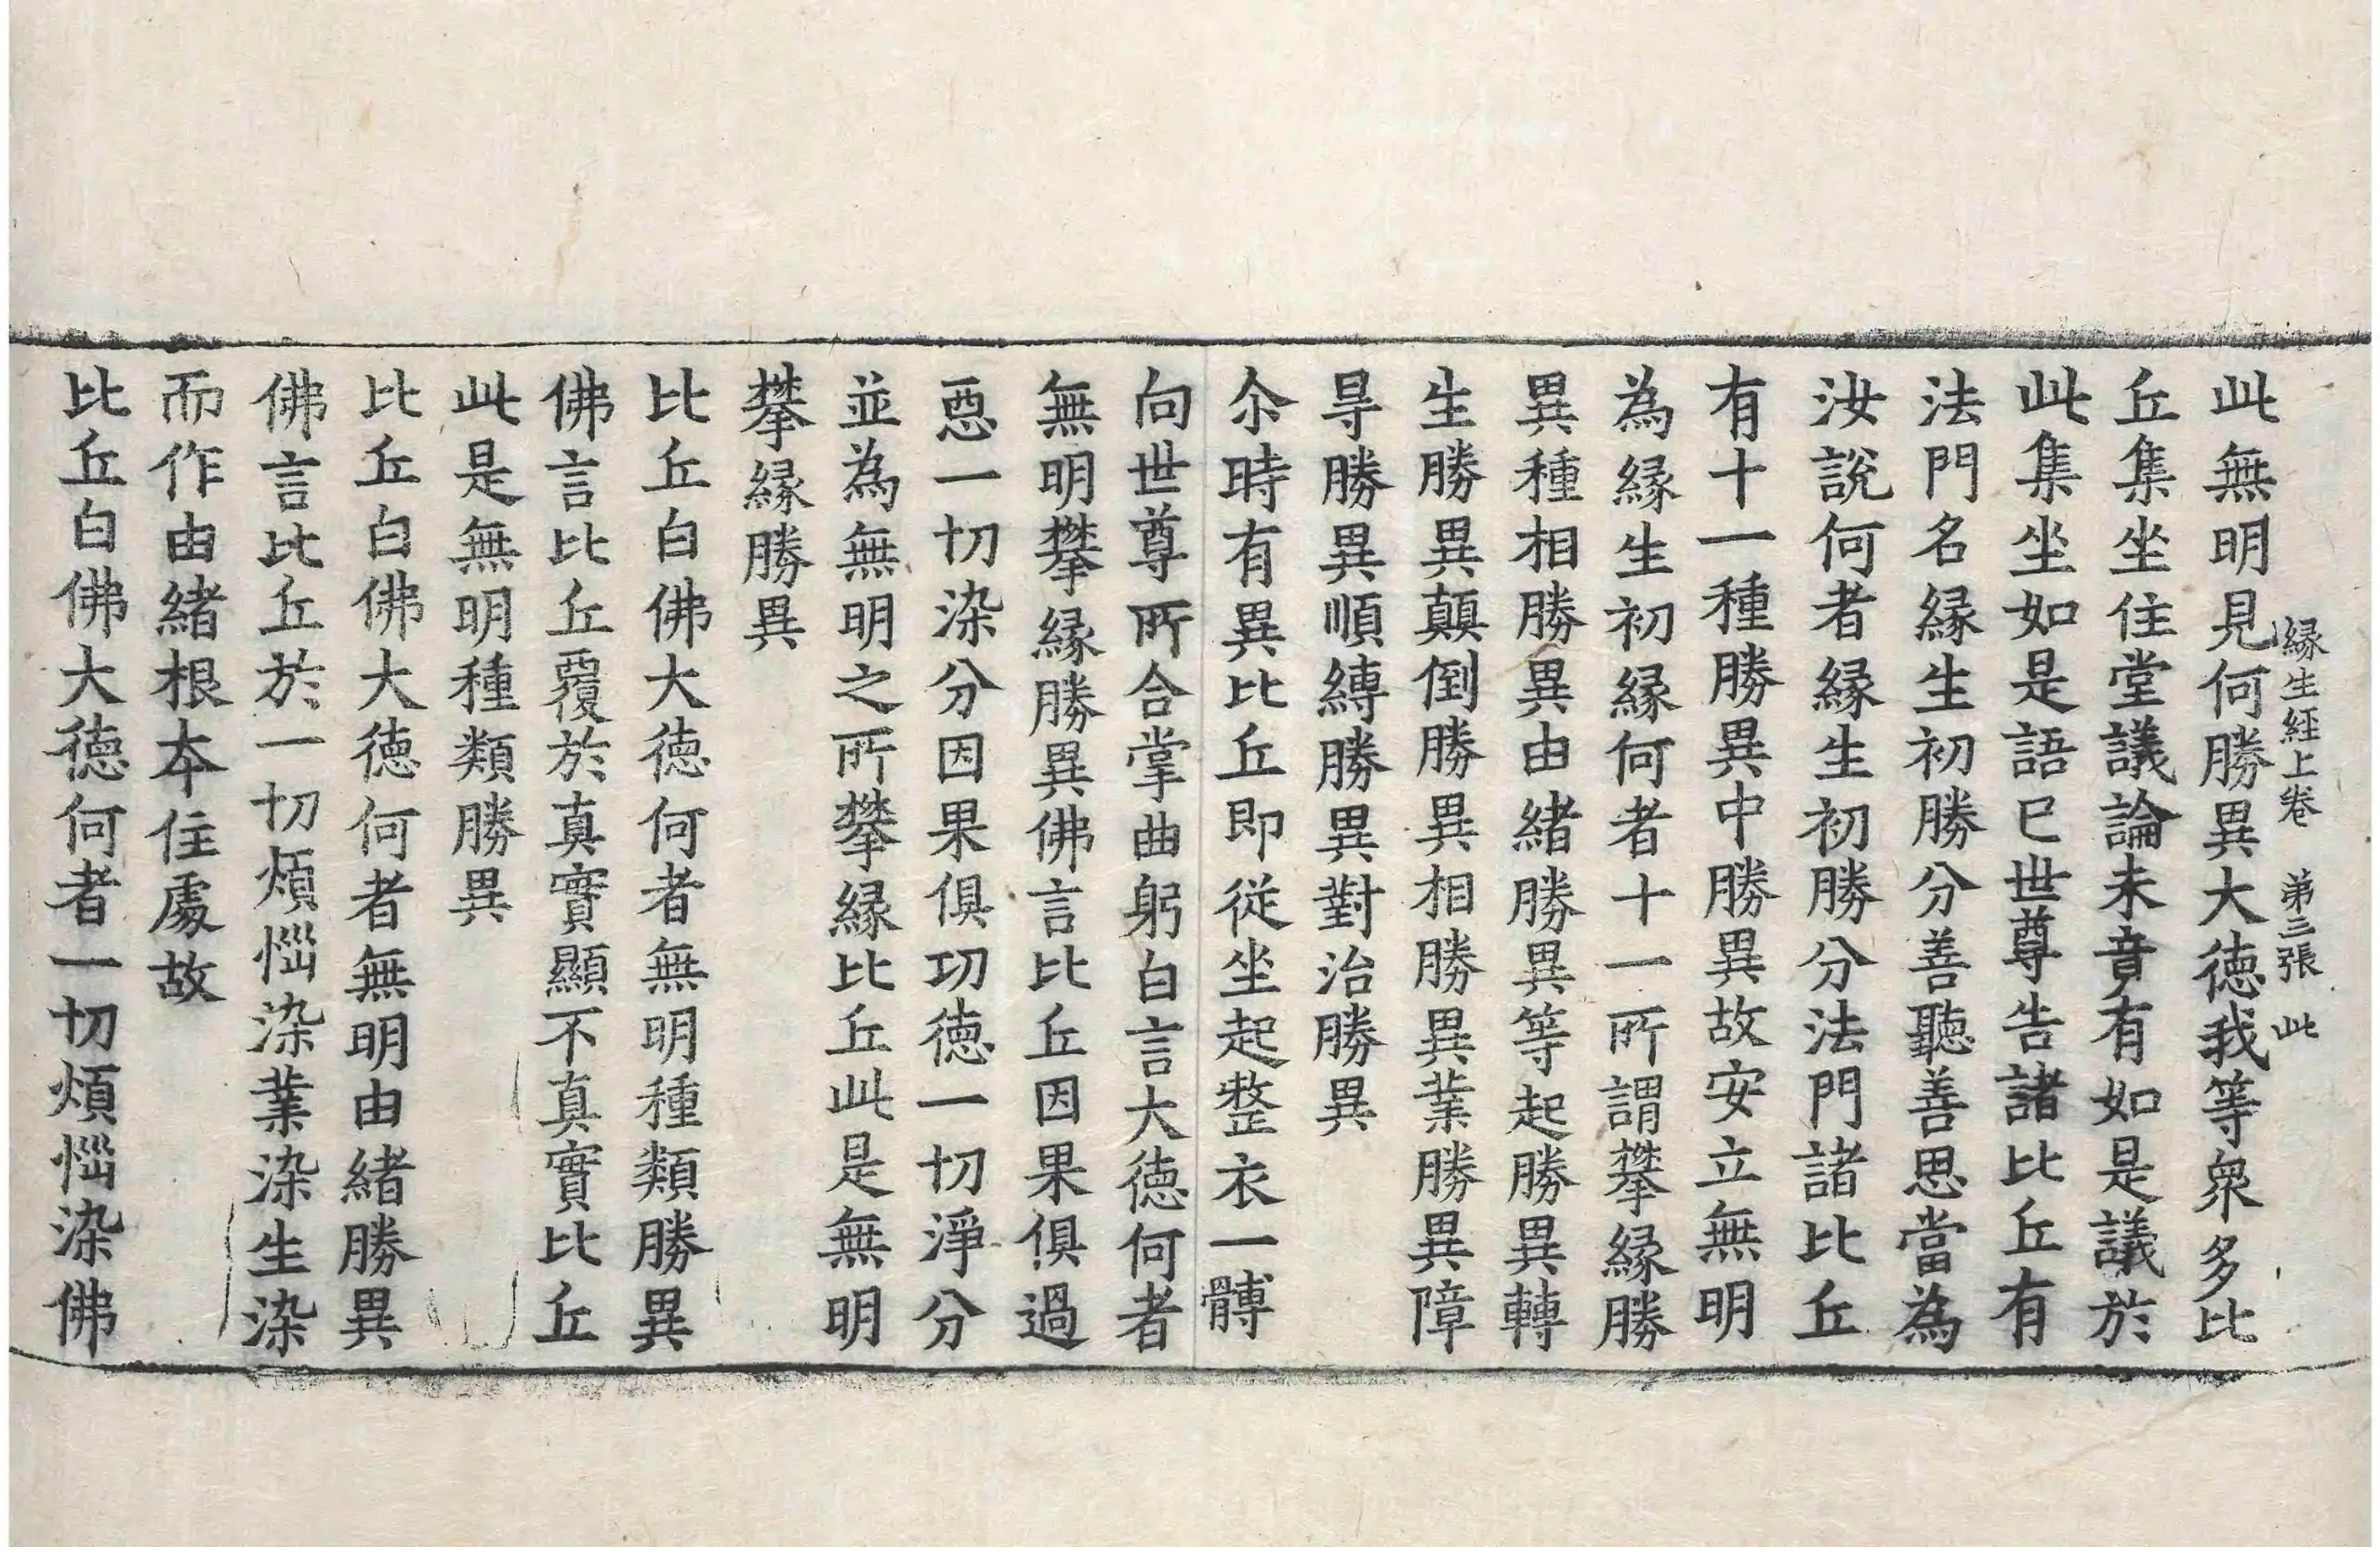 緣生經上卷 第三張 此
此無明見何勝異大德我等衆多比
丘集坐住堂議論未竟有如是議於
此集坐如是語已世尊告諸比丘有
法門名緣生初勝分善聽善思當為
汝說何者緣生初勝分法門諸比丘
有十一種勝異中勝異故安立無明
為緣生初緣何者十一所謂攀緣勝
異種相勝異由緒勝異等起勝異轉
生勝異顛倒勝異相勝異業勝異障
㝵勝異順縛勝異對治勝異
尒時有異比丘即從坐起整衣一髆
向世尊所合掌曲躬白言大德何者
無明攀緣勝異佛言比丘因果俱過
惡一切染分因果俱功德一切淨分
並為無明之所攀緣比丘此是無明
攀緣勝異
比丘白佛大德何者無明種類勝異
佛言比丘覆於真實顯不真實比丘
此是無明種類勝異
比丘白佛大德何者無明由緒勝異
佛言比丘於一切煩惱染業染生染
而作由緒根本住處故
比丘白佛大德何者一切煩惱染佛